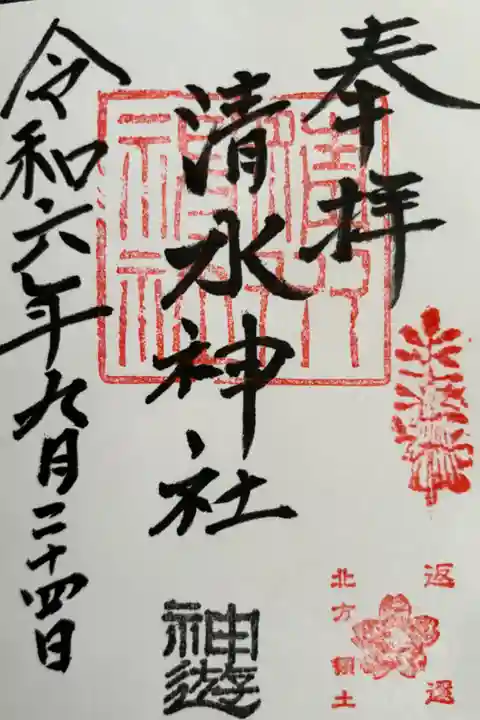 奉拝
清水神社
令和六年九月二十四日
神遊
返還
北方領土